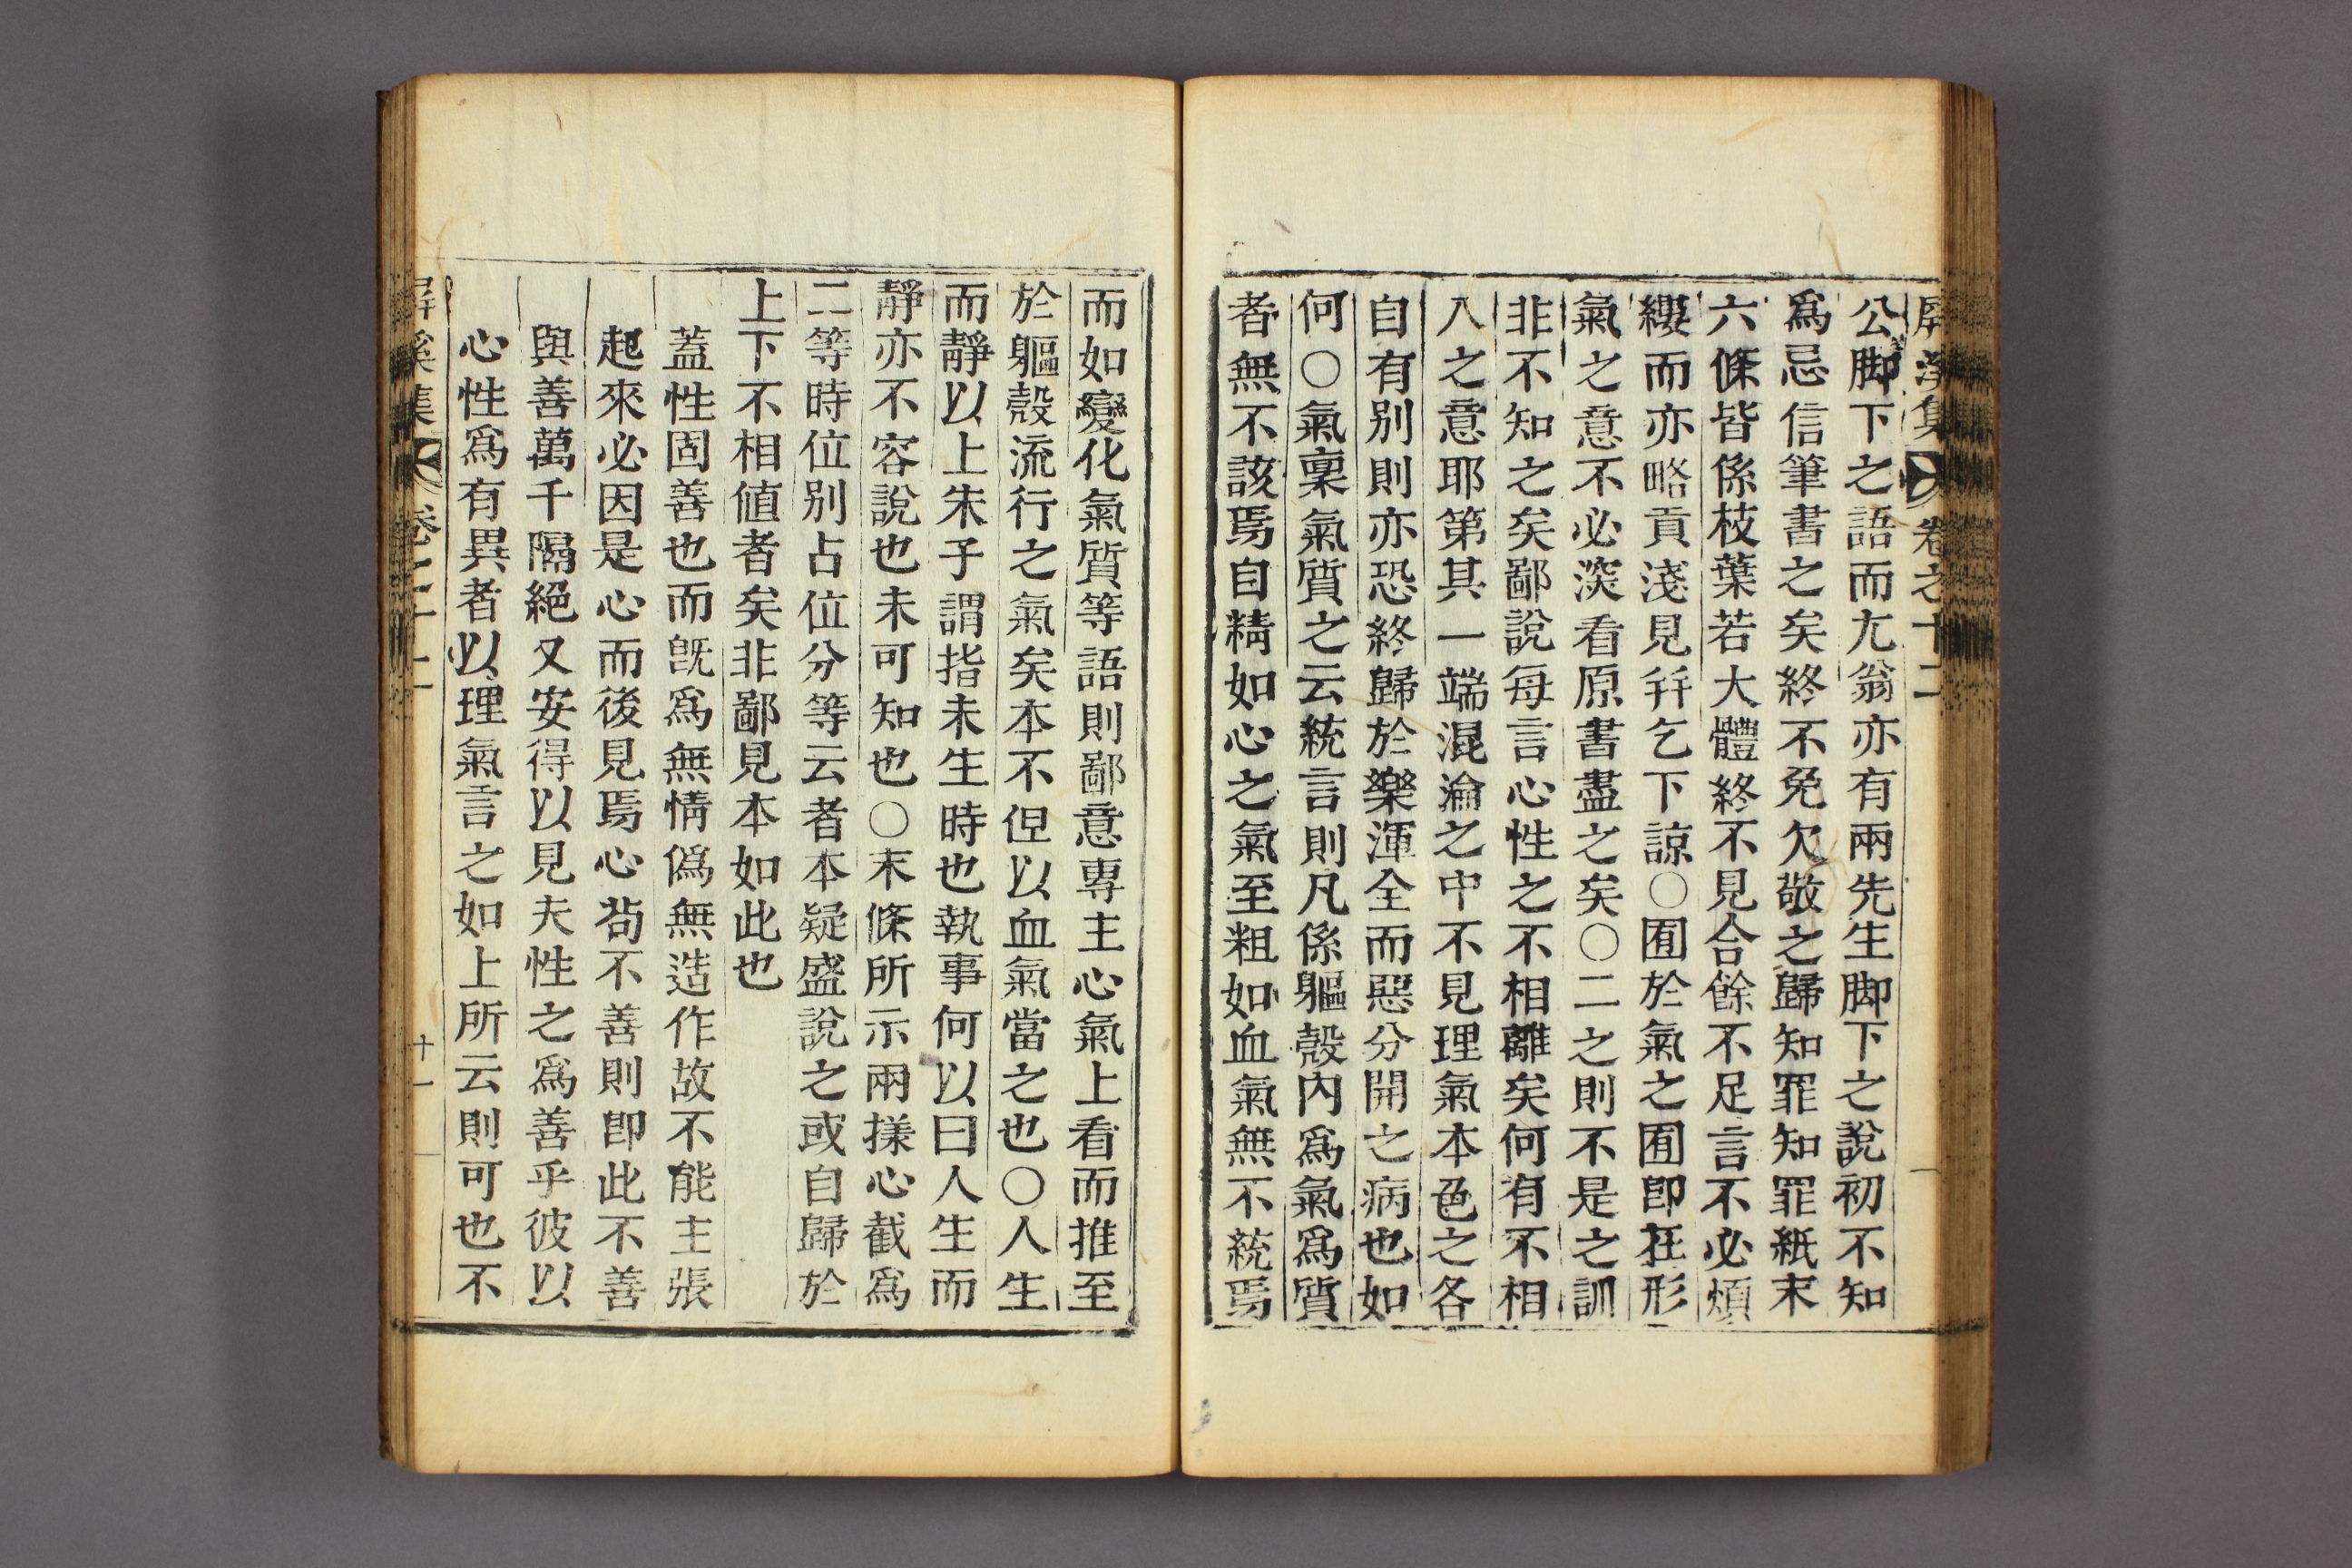 屛溪集 卷之十二
公脚下之語而尢翁亦有兩先生脚下之說初不知
爲忌信筆書之矣終不免欠敬之歸知罪知罪紙末
六條皆係枝葉若大體終不見合餘不足言不必煩
纓而亦略貢淺見幷乞下諒○囿於氣之囿卽在形
氣之意不必深看原書盡之矣○二之則不是之訓
非不知之矣鄙說每言心性之不相離矣何有不相
八之意耶第其一端混淪之中不見理氣本色之各
自有別則亦恐終歸於樂渾全而惡分開之病也如
何○氣稟氣質之云統言則凡係軀殼內爲氣爲質
者無不該焉自精如心之氣至粗如血氣無不統焉
而如變化氣質等語則鄙意專主心氣上看而推至
於軀殼流行之氣矣本不但以血氣當之也○人生
而靜以上朱子謂指未生時也執事何以曰人生而
靜亦不容說也未可知也○末條所示兩㨾心截爲
二等時位別占位分等云者本疑盛說之或自歸於
上下不相値者矣非鄙見本如此也
蓋性固善也而旣爲無情僞無造作故不能主張
起來必因是心而後見焉心茍不善則卽此不善
與善萬千隔絕又安得以見夫性之爲善乎彼以
心性爲有異者以理氣言之如上所云則可也不
屛溪集 卷之十二 十一